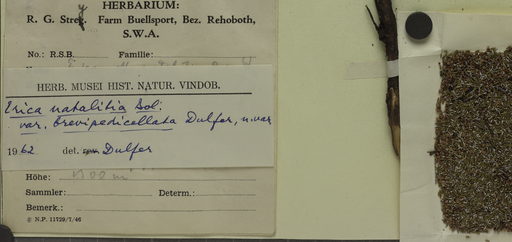 HERBARIUM:
R. G. Strey. Farm Buellsport, Bez. Rehoboth,
S.W.A.
No.: R.S.B. Familie:
HERB. MUSEI HIST. NATUR. VINDOB.
Erica natalitia Bol.
var. brevipedicellata Dulfer, n. var
1962 det. Dulfer
Höhe: m
Sammler: Determ.:
Bemerk.:
N.P. 11729/7/46